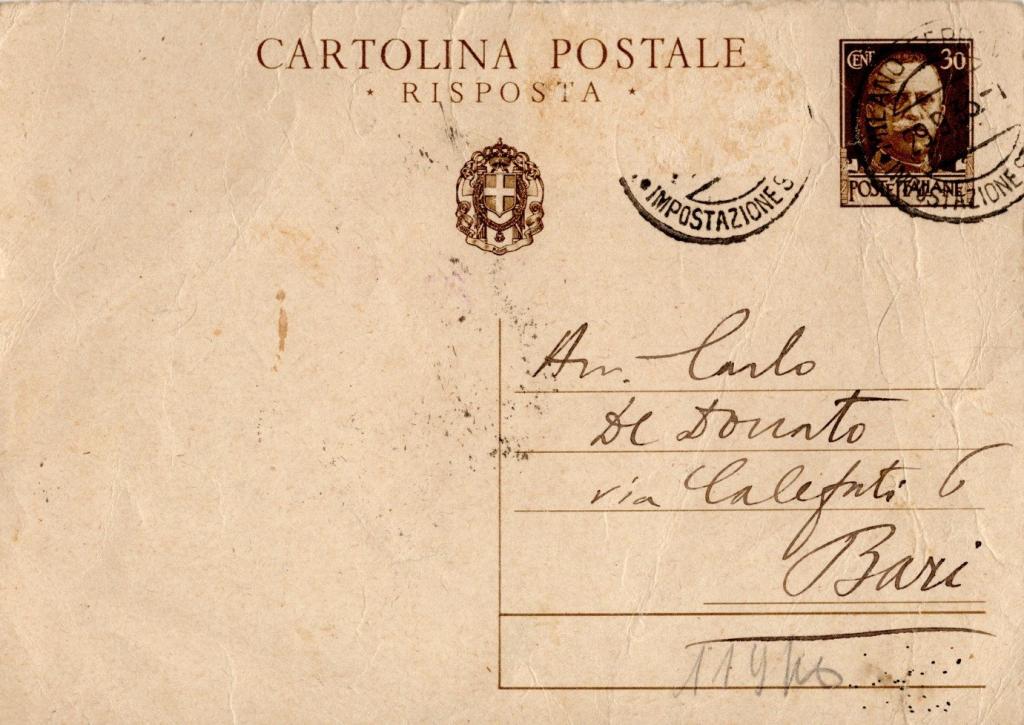 CARTOLINA POSTALE
RISPOSTA
CENT 30
POSTE ITALIANE
IMPOSTAZIONE
MILANO
IMPOSTAZIONE
Avv. Carlo
De Donato
via Calefati 6
Bari